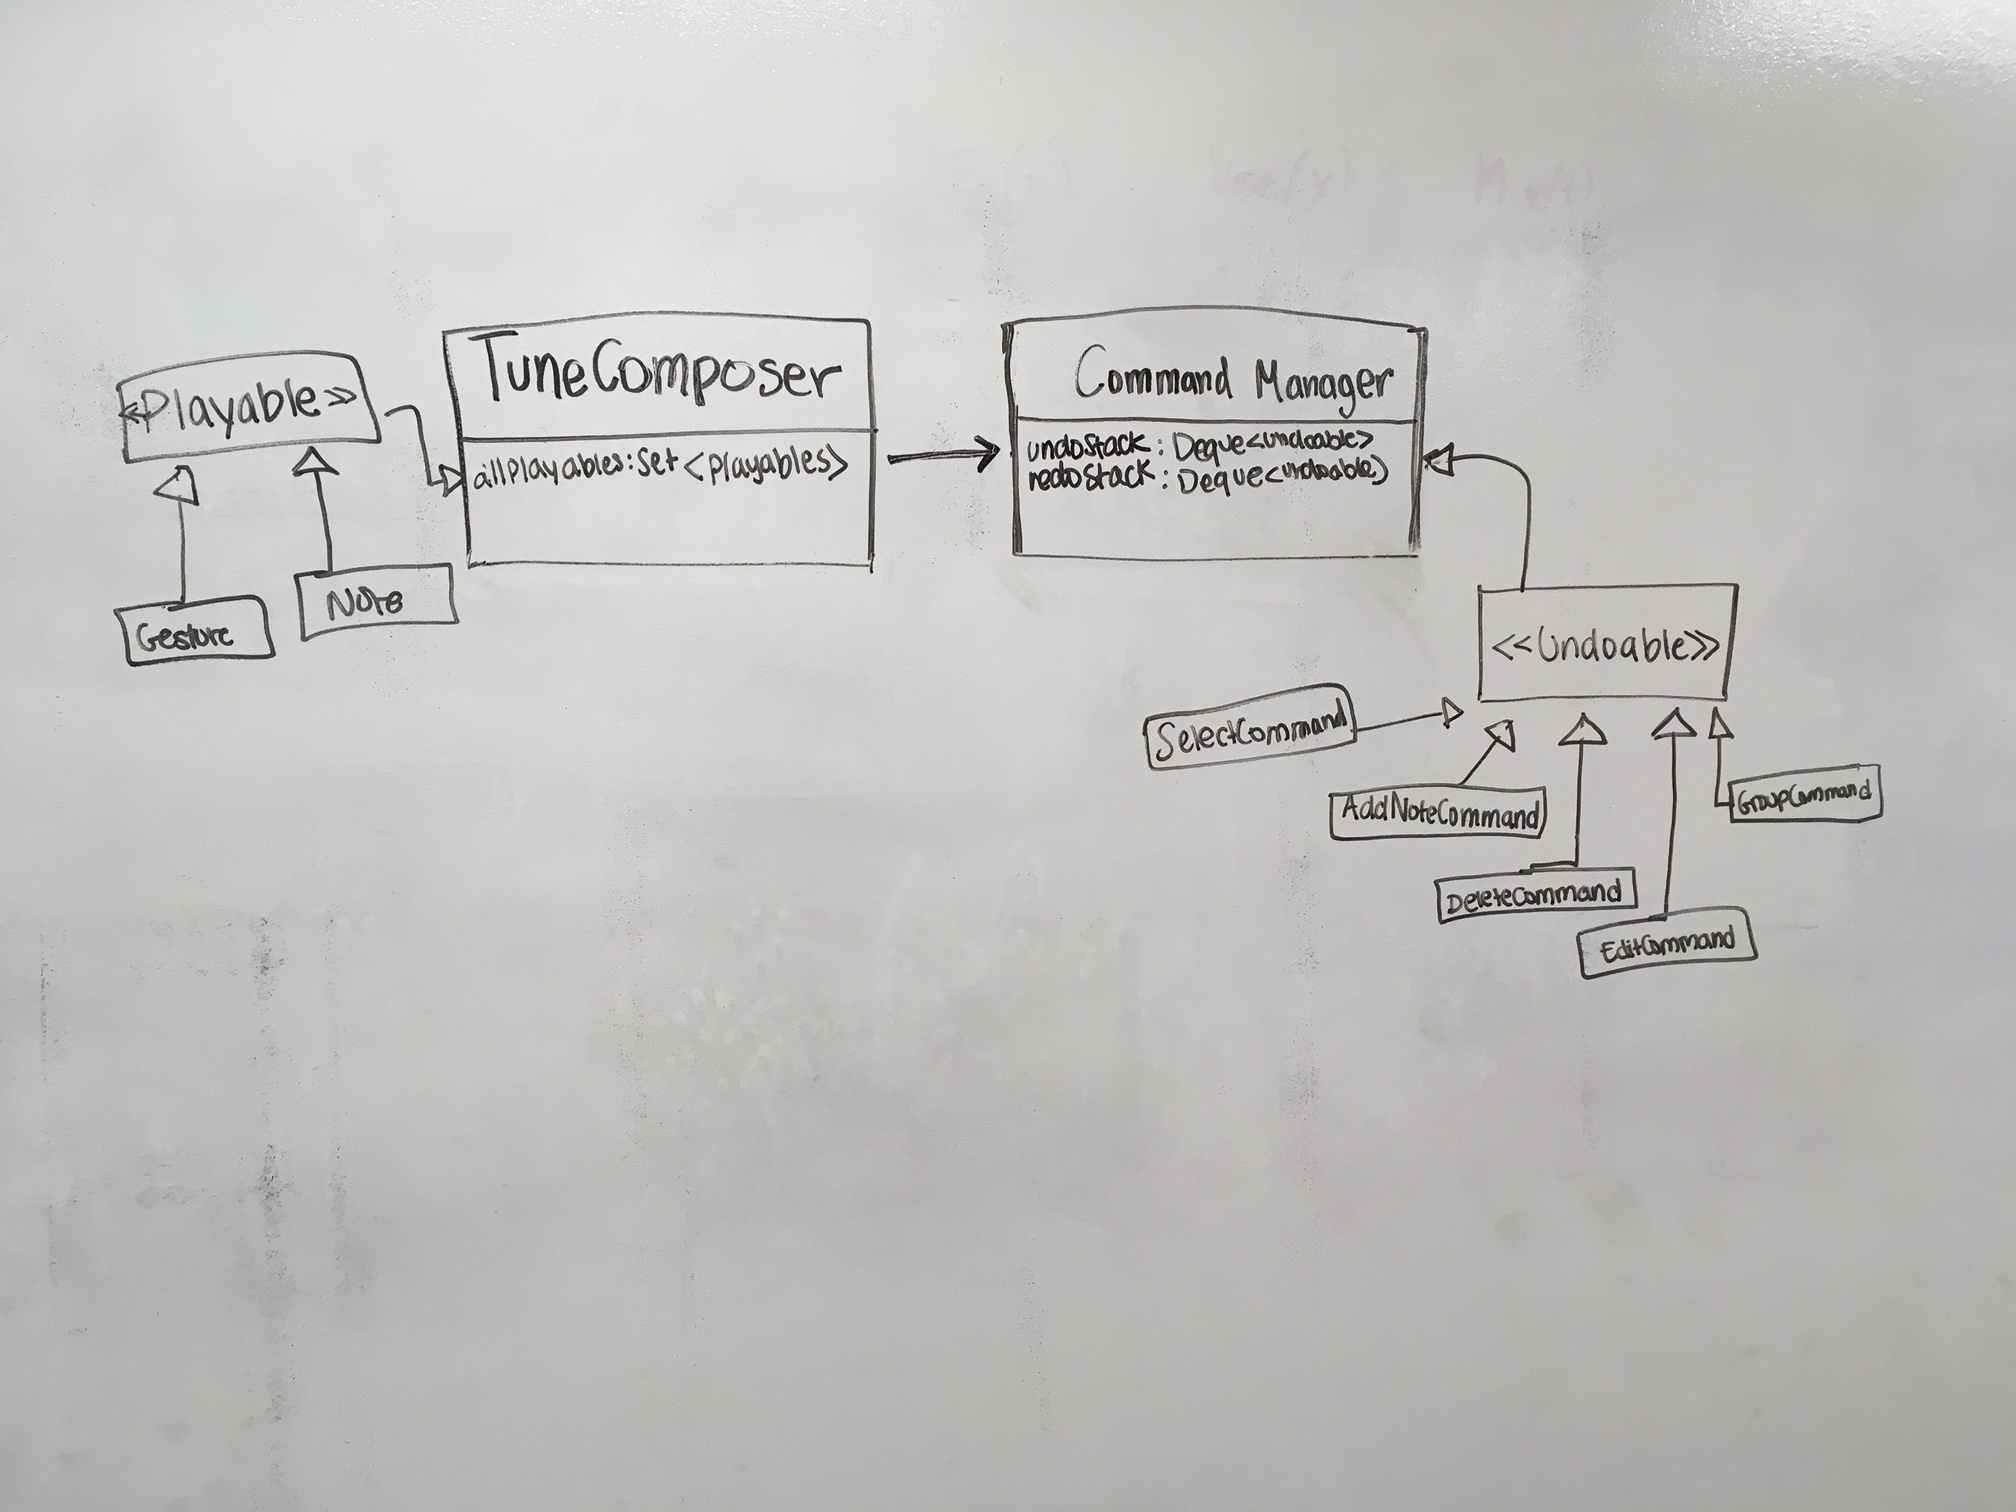 <<Playable>>
TuneComposer
allPlayables: Set <playables>
Gesture
Note
Command Manager
undoStack: Deque<undoable>
redoStack: Deque<undoable>
<<Undoable>>
SelectCommand
AddNoteCommand
DeleteCommand
EditCommand
GroupCommand